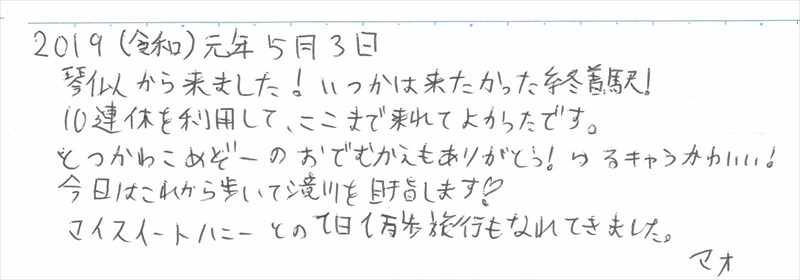 2019(令和)元年5月3日
琴似から来ました!いつかは来たかった終着駅!
10連休を利用して、ここまで来れてよかったです。
とつかわこめぞーのおでむかえもありがとう!ゆるキャラかわいい!
今日はこれから歩いて滝川を目指します♡
マイスイートハニーとの1日1万歩旅行もなれてきました。
マオ